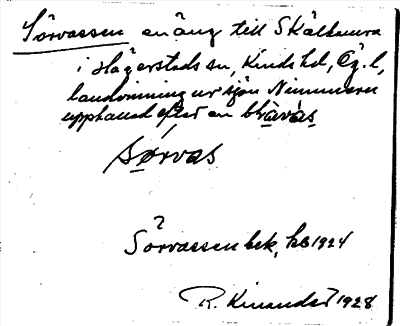 Sörvassen en äng till Skälhamra
i Hägerstads sn, Kinds hd, Ög. l,
landvinning ur sjön Nimmern
uppkallad efter en
sørvas
Sörvassen bek, hs 1924
R. Kinander 1928